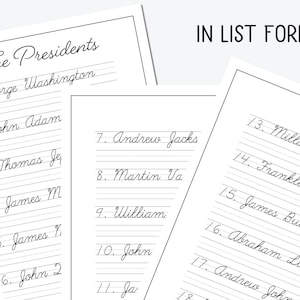 IN LIST FOR
Presidents
Washington
Thomas
James
6. John
7. Andrew Jacks
8. Martin Va
9. William
10. John
11. Ja
13. Mill
14. Frankl
15. James Bu
16. Abraham Li
17. Andrew John